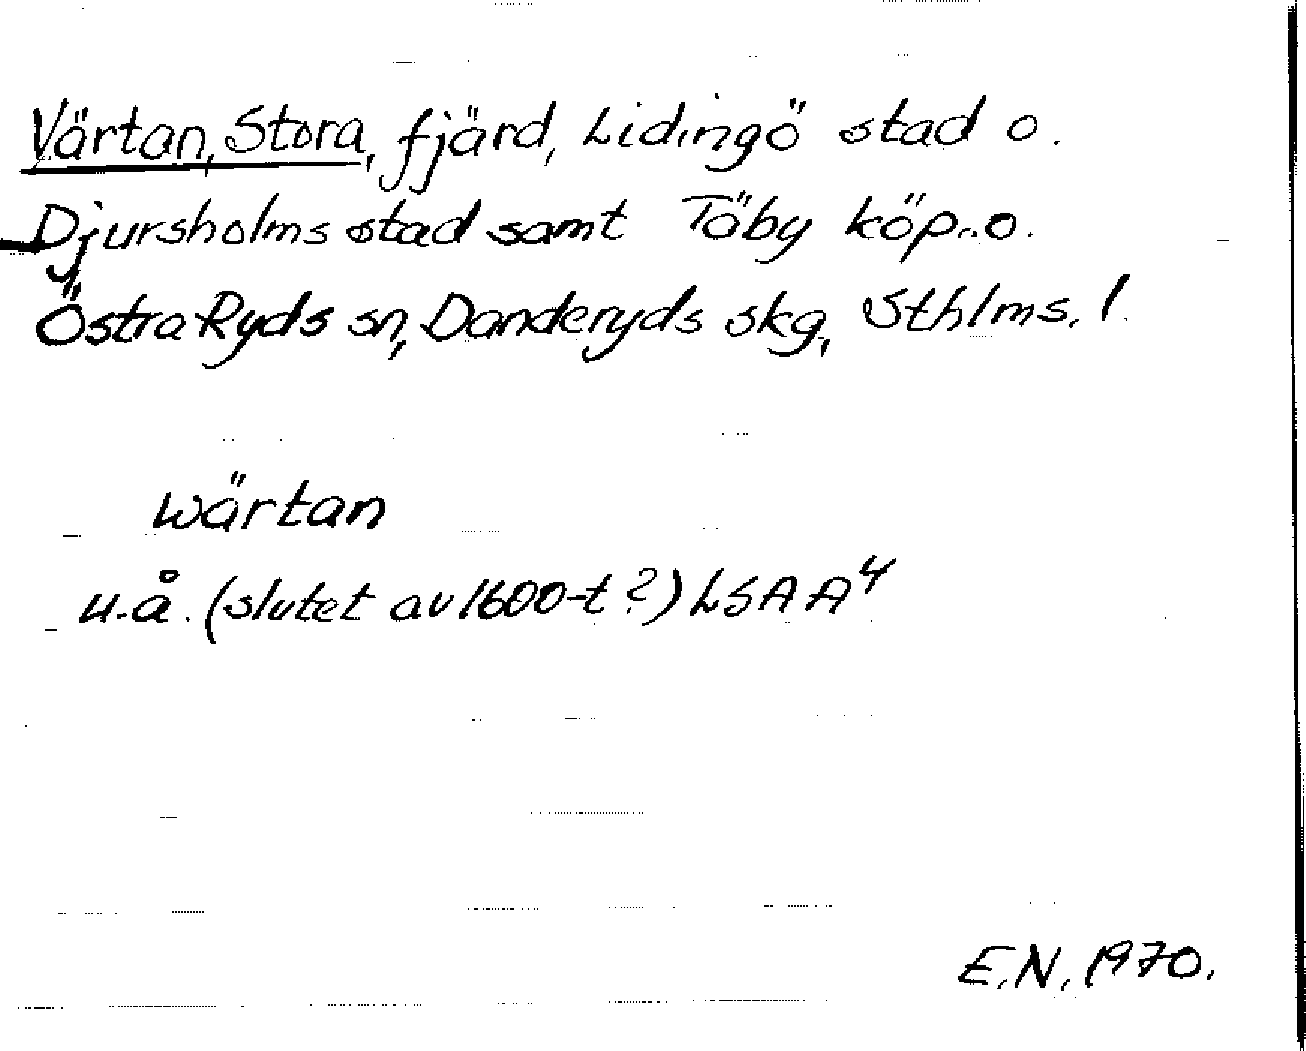 Värtan, Stora, fjärd, Lidingö stad o.
Djursholms stad samt Täby köp. o.
Östra Ryds sn, Danderyds skg, Sthlms. l.
Wärtan
u.å. (slutet av 1600-t ?) LSA A⁴
E.N. 1970.